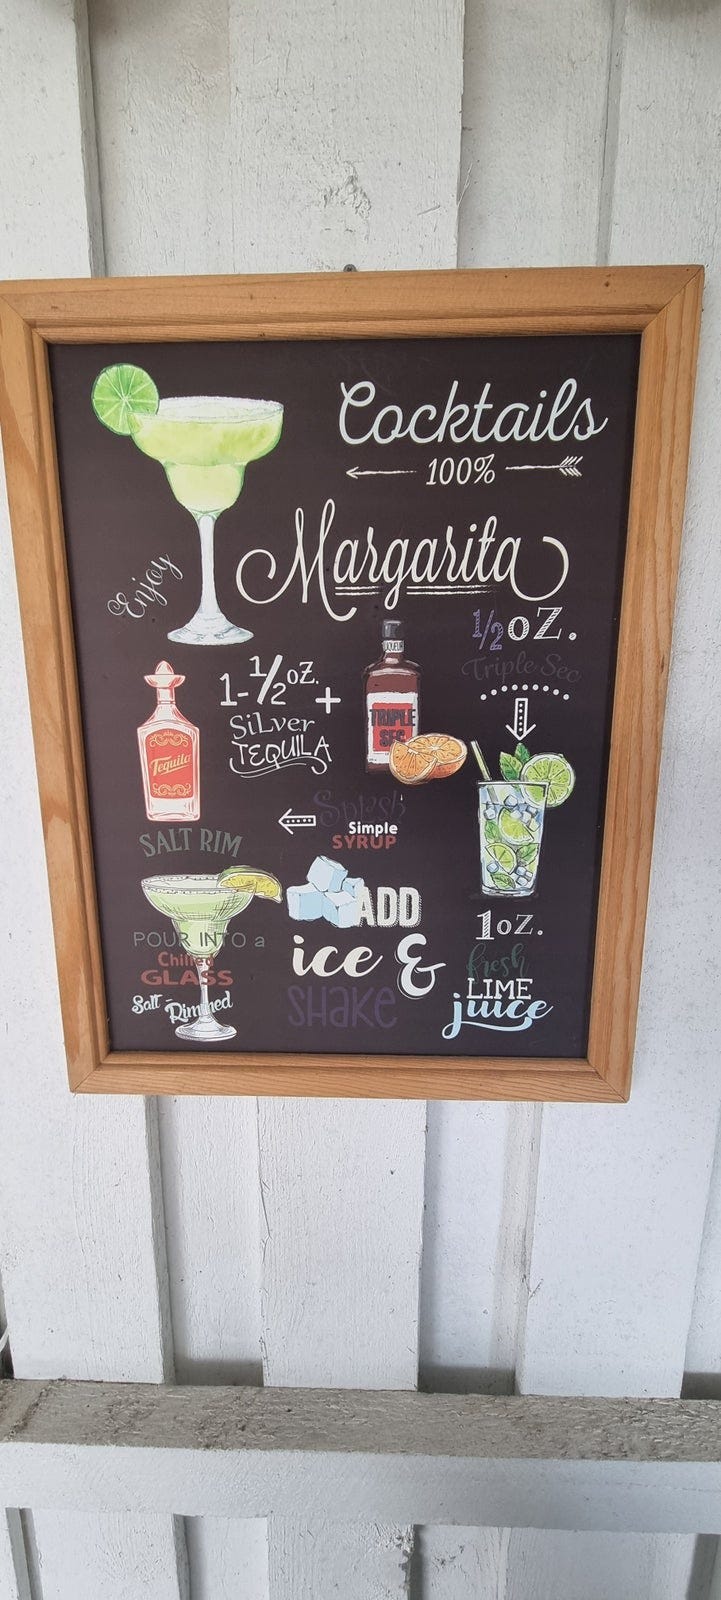 Cocktails
100%
Margarita
Enjoy
1-1/2 oZ.
SiLver
TEQUILA
+
LIQUEUR
TRIPLE
SEC
1/2 oZ.
Triple Sec
Tequila
Splash
Simple
SYRUP
1 oZ.
fresh
LIME
juice
ADD
ice &
SHAKE
SALT RIM
POUR INTO a
Chilled
GLASS
Salt-Rimmed